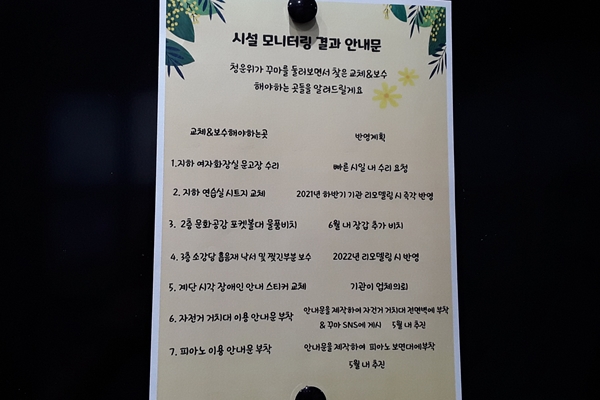 시설 모니터링 결과 안내문
청운위가 꾸마를 둘러보면서 찾은 교체&보수
해야하는 곳들을 알려드릴게요
교체&보수해야하는곳 반영계획
1.지하 여자화장실 문고장 수리 빠른 시일 내 수리 요청
2. 지하 연습실 시트지 교체 2021년 하반기 기관 리모델링 시 즉각 반영
3. 2층 문화공감 포켓볼대 물품비치 6월 내 장갑 추가 비치
4. 3층 소강당 흡음재 낙서 및 찢긴부분 보수 2022년 리모델링 시 반영
5. 계단 시각 장애인 안내 스티커 교체 기관이 업체의뢰
6. 자전거 거치대 이용 안내문 부착 안내문을 제작하여 자전거 거치대 전면벽에 부착
& 꾸마 SNS에 게시 5월 내 추진
7. 피아노 이용 안내문 부착 안내문을 제작하여 피아노 보면대에부착
5월 내 추진